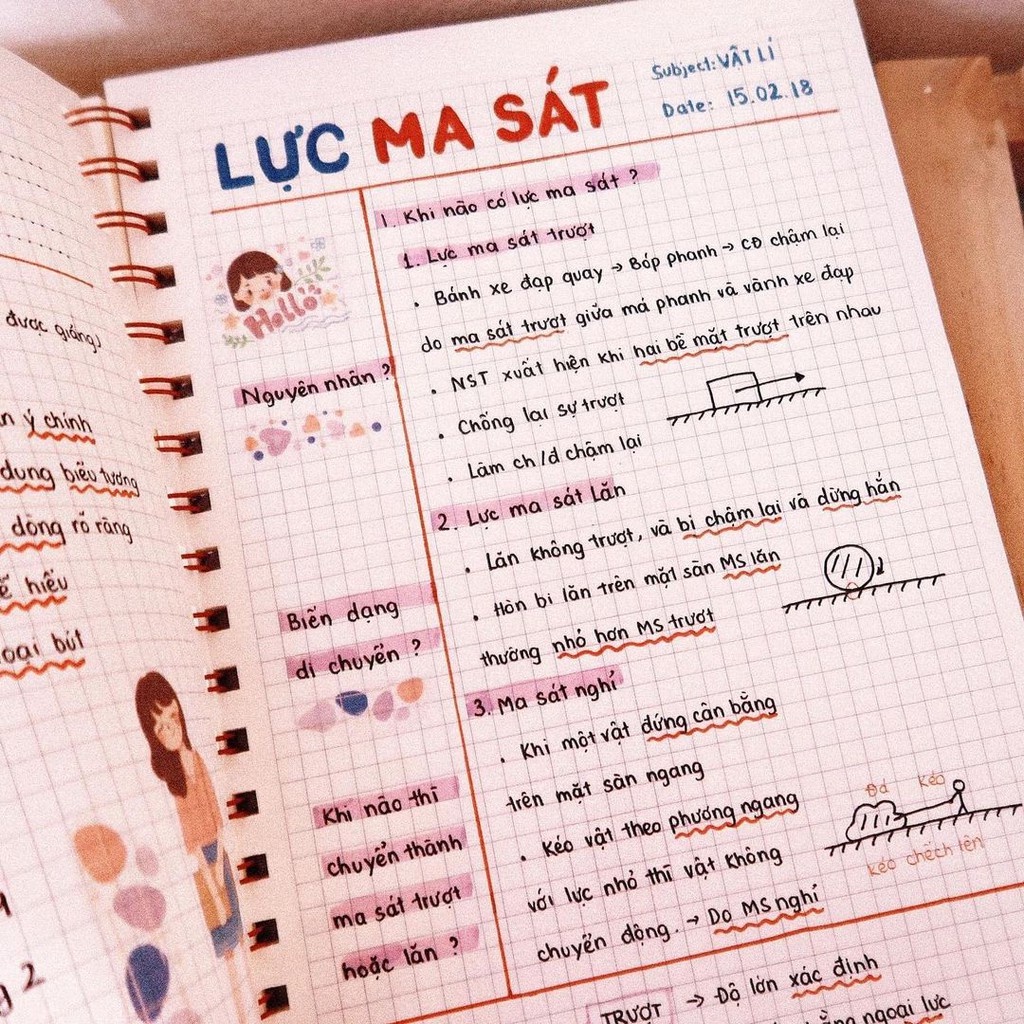 được giảng)
ý chính
dung biểu tượng
dòng rõ ràng
hiểu
bút
2
LỰC MA SÁT
Subject: VẬT LÍ
Date: 15.02.18
Hello
Nguyên nhân?
Biến dạng
di chuyển?
Khi nào thì
chuyển thành
ma sát trượt
hoặc lăn?
I. Khi nào có lực ma sát?
1. Lực ma sát trượt
• Bánh xe đạp quay → Bóp phanh → CĐ chậm lại
do ma sát trượt giữa má phanh và vành xe đạp
• NST xuất hiện khi hai bề mặt trượt trên nhau
• Chống lại sự trượt
• Làm ch/đ chậm lại
2. Lực ma sát lăn
• Lăn không trượt, và bị chậm lại và dừng hẳn
• Hòn bi lăn trên mặt sàn MS lăn
thường nhỏ hơn MS trượt
3. Ma sát nghỉ
• Khi một vật đứng cân bằng
trên mặt sàn ngang
• Kéo vật theo phương ngang
với lực nhỏ thì vật không
chuyển động. → Do MS nghỉ
Đá kéo
kéo chếch lên
TRƯỢT → Độ lớn xác định
bằng ngoại lực